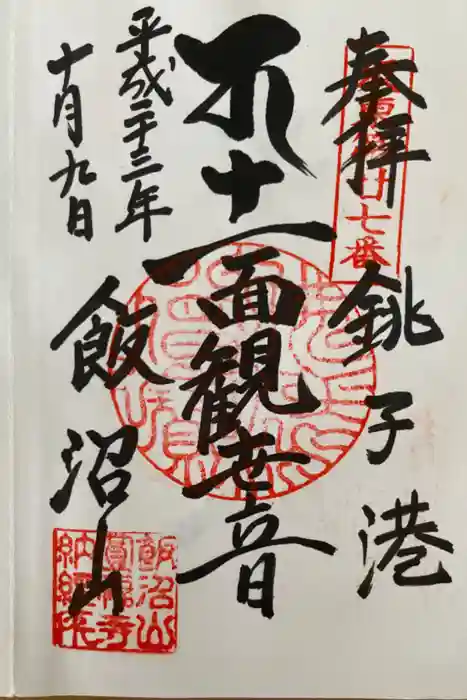 奉拝
廿七番
銚子港
十一面観世音
平成二十三年
十月九日
飯沼山
飯沼山
圓福寺
納經